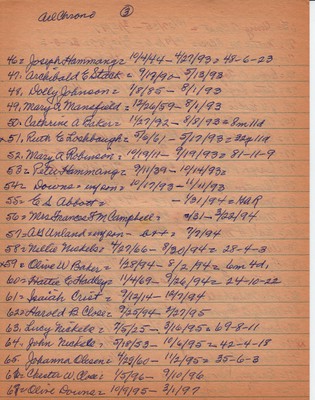 Ael Chrono ③
46= Joseph Hammang= 10/4/44 - 4/27/93= 48-6-23
47. Archibald C Stack = 9/19/90 - 5/13/93
48. Dolly Johnson= 4/8/85 - 8/1/93
49. Mary A Mansfield= 12/26/59 - 8/1/93
50= Cathrine A Baker= 11/27/92 - 8/8/93= 8m 11d
*51. Ruth E Loshbough= 5/6/61 - 5/17/93= 32y 11d
52. Mary A Robinson= 10/19/11 - 9/19/93= 81-11-9
53= Peter Hammang= 9/11/39 - 12/14/93=
54= Downs = 10/17/93 - 11/11/93
55= G S Abbott= - /31/94= H&R
56= Mrs Frances F M Campbell= /31 - 3/22/94
57= A S Unland= - 9/7/94
58= Nellie Nickels= 4/27/66 - 8/30/94= 28-4-3
*59= Olive W Baker= 1/28/94 - 8/2/94= 6m 4d.
60= Hattie E Hartley= 11/4/69 - 9/26/94= 24-10-22
61= Isaiah Crist= 9/12/14 - 12/7/94
62= Harold B Close= 9/25/94 - 4/27/95
63. Lucy Nickels= 7/5/25 - 3/16/95= 69-8-11
64. John Nickels= 5/18/53 - 10/6/95= 42-4-18
65 Johanna Oleson= 4/29/60 - 11/2/95= 35-6-3
66= Chester W Close= 1/5/96 - 9/10/96
67= Olive Downs= 10/9/95 - 3/1/97